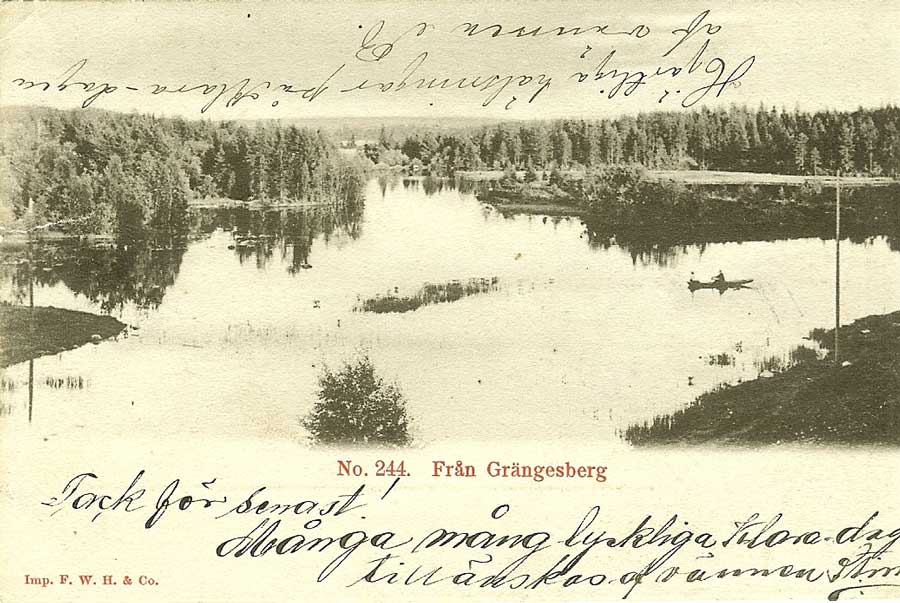 Hjärtliga hälsningar på Klara-dagen
af vännen
No. 244. Från Grängesberg
Tack för senast!
Många mång lyckliga Klara-dag
tillönskas af vännen
Imp. F. W. H. & Co.